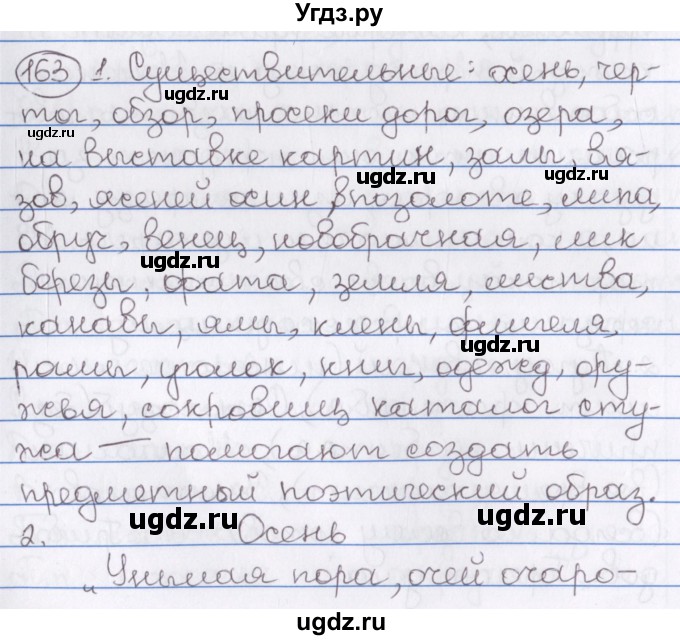 Угдз.ру
163 1. Существительные: осень, чер-
тог, обзор, просеки дорог, озера,
на выставке картин, залы, вя-
зов, ясеней осин, в позолоте, липа,
обруч, венец, новобрачная, лик
березы, фата, земля, листва,
канавы, ямы, клены, флигеля,
рамы, уголок, книг, одежд, ору-
жья, сокровищ каталог сту-
жа — помогают создать
предметный поэтический образ.
2. Осень
„Унылая пора, очей очаро-
ugdz.ru
ugdz.ru
ugdz.ru
ugdz.ru
ugdz.ru
ugdz.ru
ugdz.ru
ugdz.ru
ugdz.ru
ugdz.ru